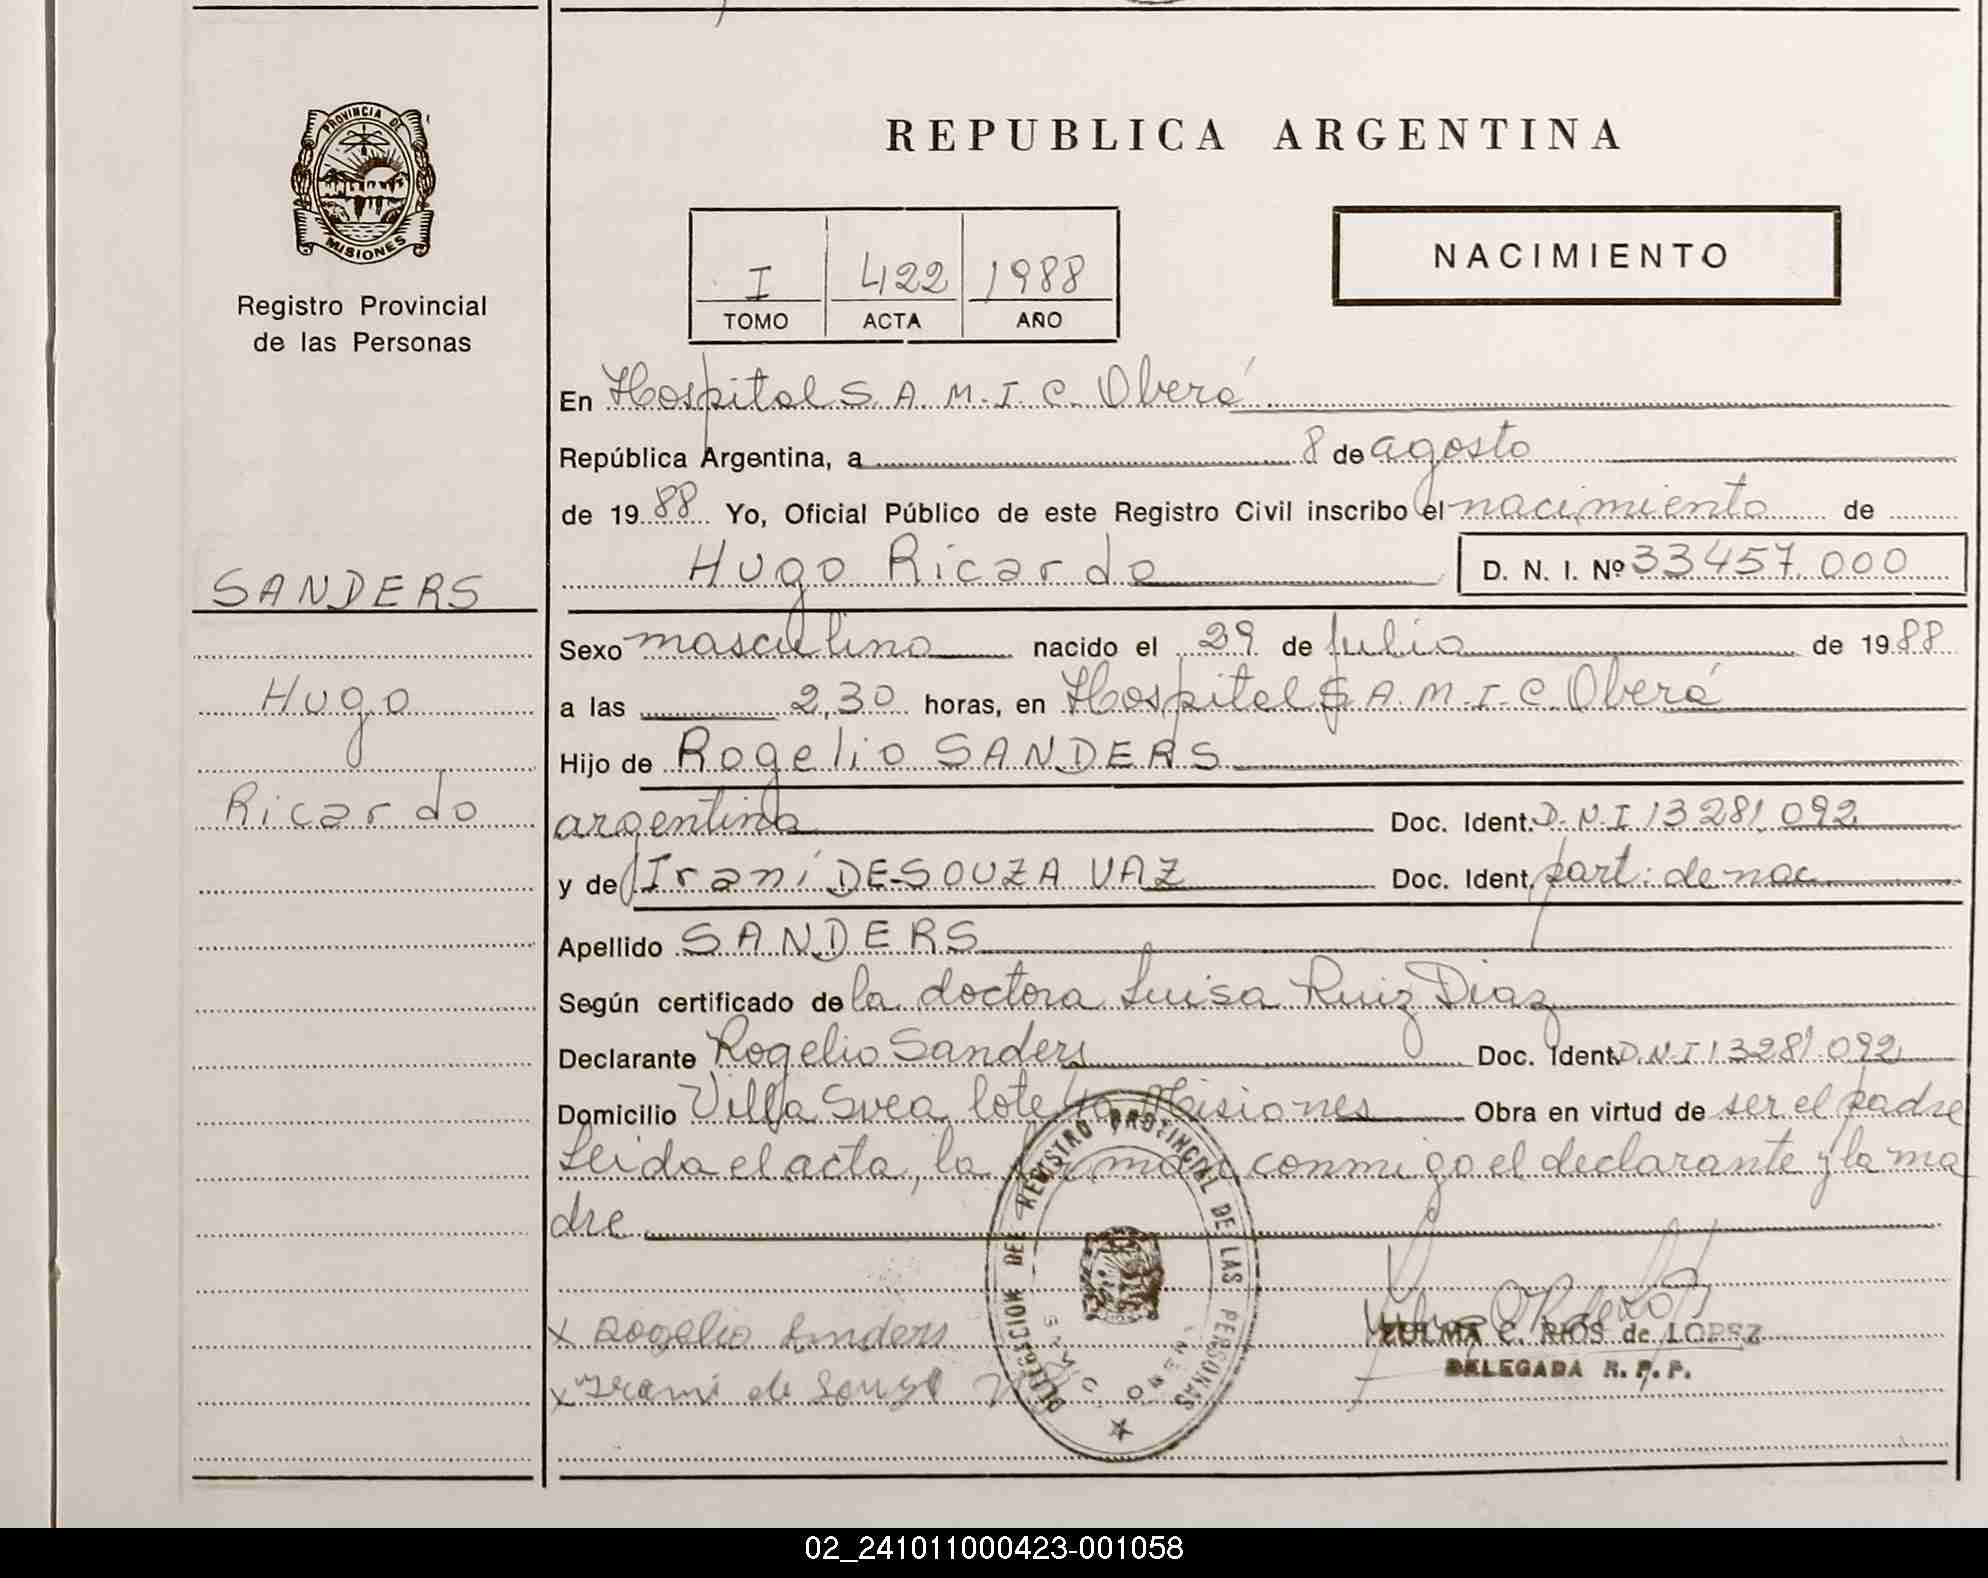 PROVINCIA DE
MISIONES
Registro Provincial
de las Personas
SANDERS
Hugo
Ricardo
REPUBLICA ARGENTINA
I 422 1988
TOMO ACTA AÑO
NACIMIENTO
En Hospital S.A.M.I.C. Oberá
República Argentina, a 8 de agosto
de 1988 Yo, Oficial Público de este Registro Civil inscribo el nacimiento de
Hugo Ricardo D. N. I. Nº 33457.000
Sexo masculino nacido el 29 de julio de 1988
a las 2,30 horas, en Hospital S.A.M.I.C. Oberá
Hijo de Rogelio SANDERS
argentina Doc. Ident. D.N.I 13281.092
y de Irani DE SOUZA VAZ Doc. Ident. part. de nac
Apellido SANDERS
Según certificado de la doctora Luisa Ruiz Diaz
Declarante Rogelio Sanders Doc. Ident. D.N.I 13281.092
Domicilio Villa Svea lote Misiones Obra en virtud de ser el padre
Leida el acta, la firman conmigo el declarante y la ma
dre
x Rogelio Sanders
x Irami de Souza
DELEGACION DEL REGISTRO PROVINCIAL DE LAS PERSONAS
ZULMA C. RIOS de LOPEZ
DELEGADA R. P. P.
02_241011000423-001058